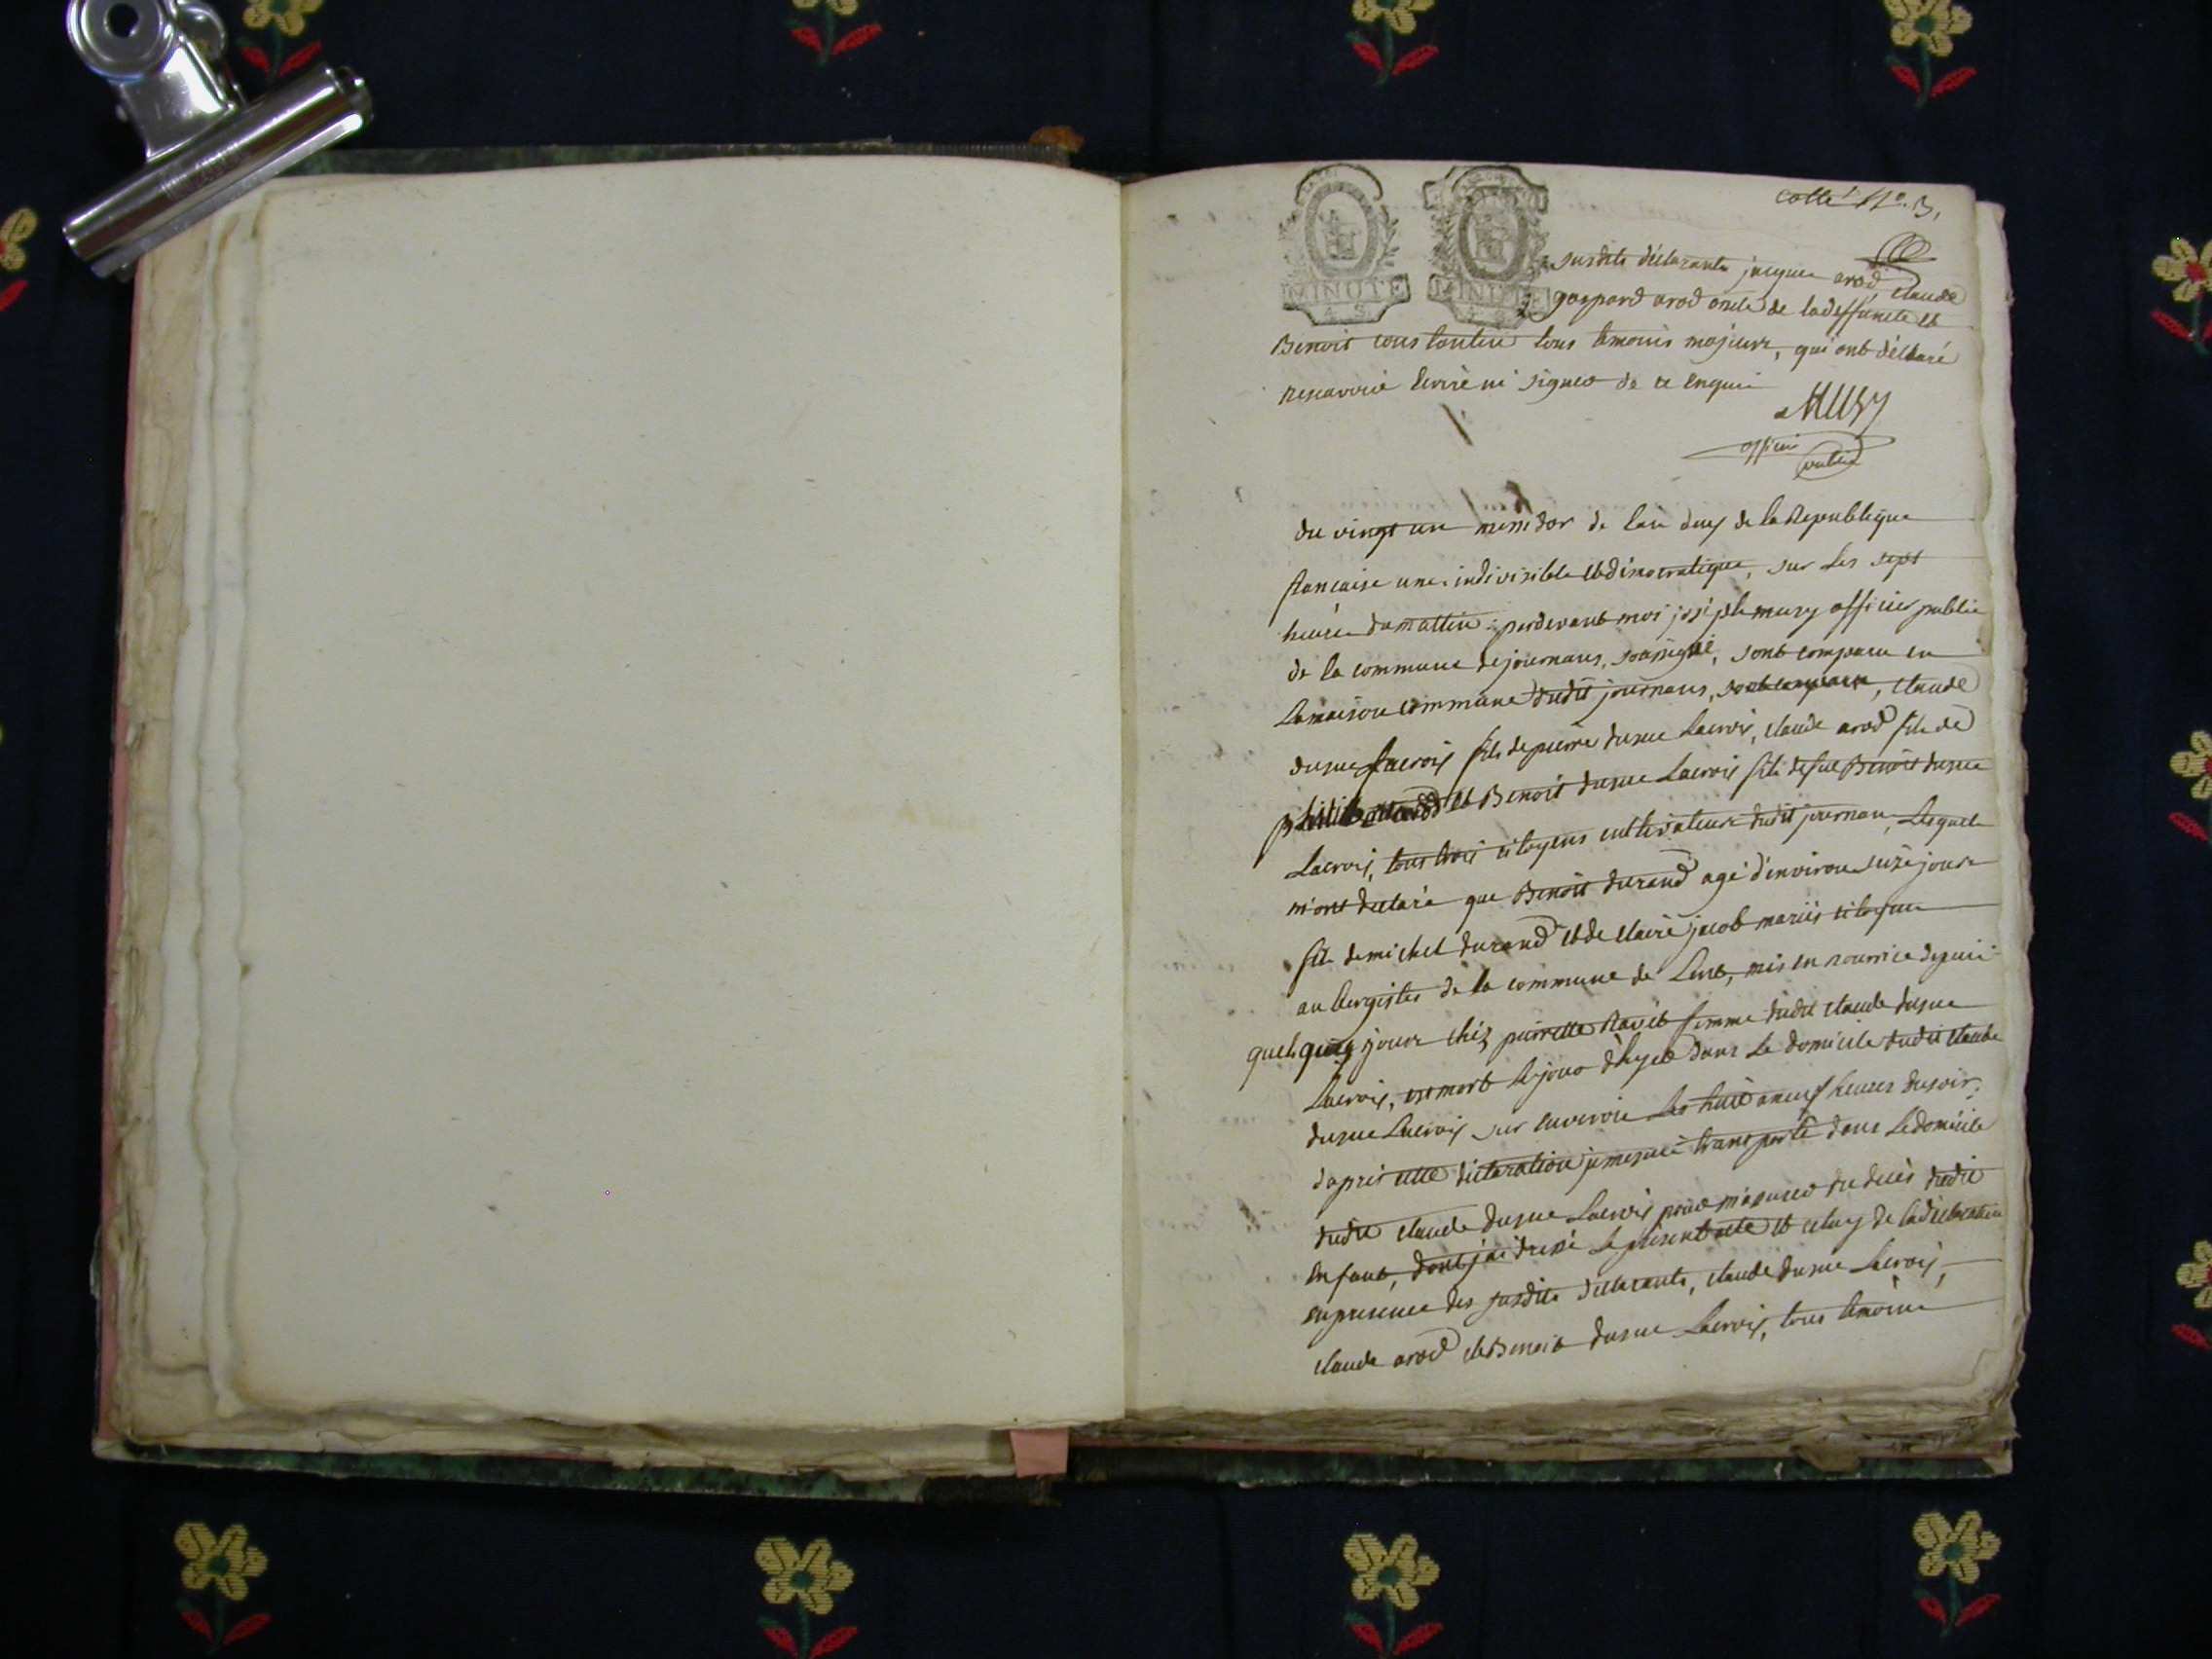 collé N.º 3,
MINOTE
4 S
MINOTE
susdits déclarants jacques arod, claude
gaspard arod oncle de la deffuncte et
Benoit constantin tous témoins majeurs, qui ont déclaré
nesavoir écrire ni signer de ce enquis
Mury
officier
public
du vingt un messidor de lan duex de la Republique
francaise une indivisible et démocratique, sur les sept
heures du mattin : pardevant moi joséph mury officier public
de la commune de journans, soussigné, sont comparu en
lamaison commune dudit journans, sont comparu, claude
dusuc lacroix fils de pierre dusuc lacroix, claude arod fils de
et Benoit dusuc lacroix fils de fut Benoit dusuc
Lacroix, tous trois citoyens cultivateurs dudit journan, lesquels
m'ont declaré que Benoit durand agé d'environ seize jours
fils de michel durand et de claire jacob mariés citoyens
aubergistes de la commune de Lent, mis en nourrice depuis
quelques jours chéz pierrette Ravet femme dudit claude dusuc
Lacroix, est mort le jour d'hyer dans le domicile dudit claude
dusuc Lacroix sur environ les huit a neuf heures du soir.
d'aprés cette déclaration je me suis transporté dans le domicile
dudit claude dusuc Lacroix pour m'assurer du decès dudit
enfant, dont j'ai dressé le présent acte et celuy de la déclaration
en presence des susdits déclarants, claude dusuc Lacroix,
claude arod et Benoit dusuc Lacroix, tous témoins